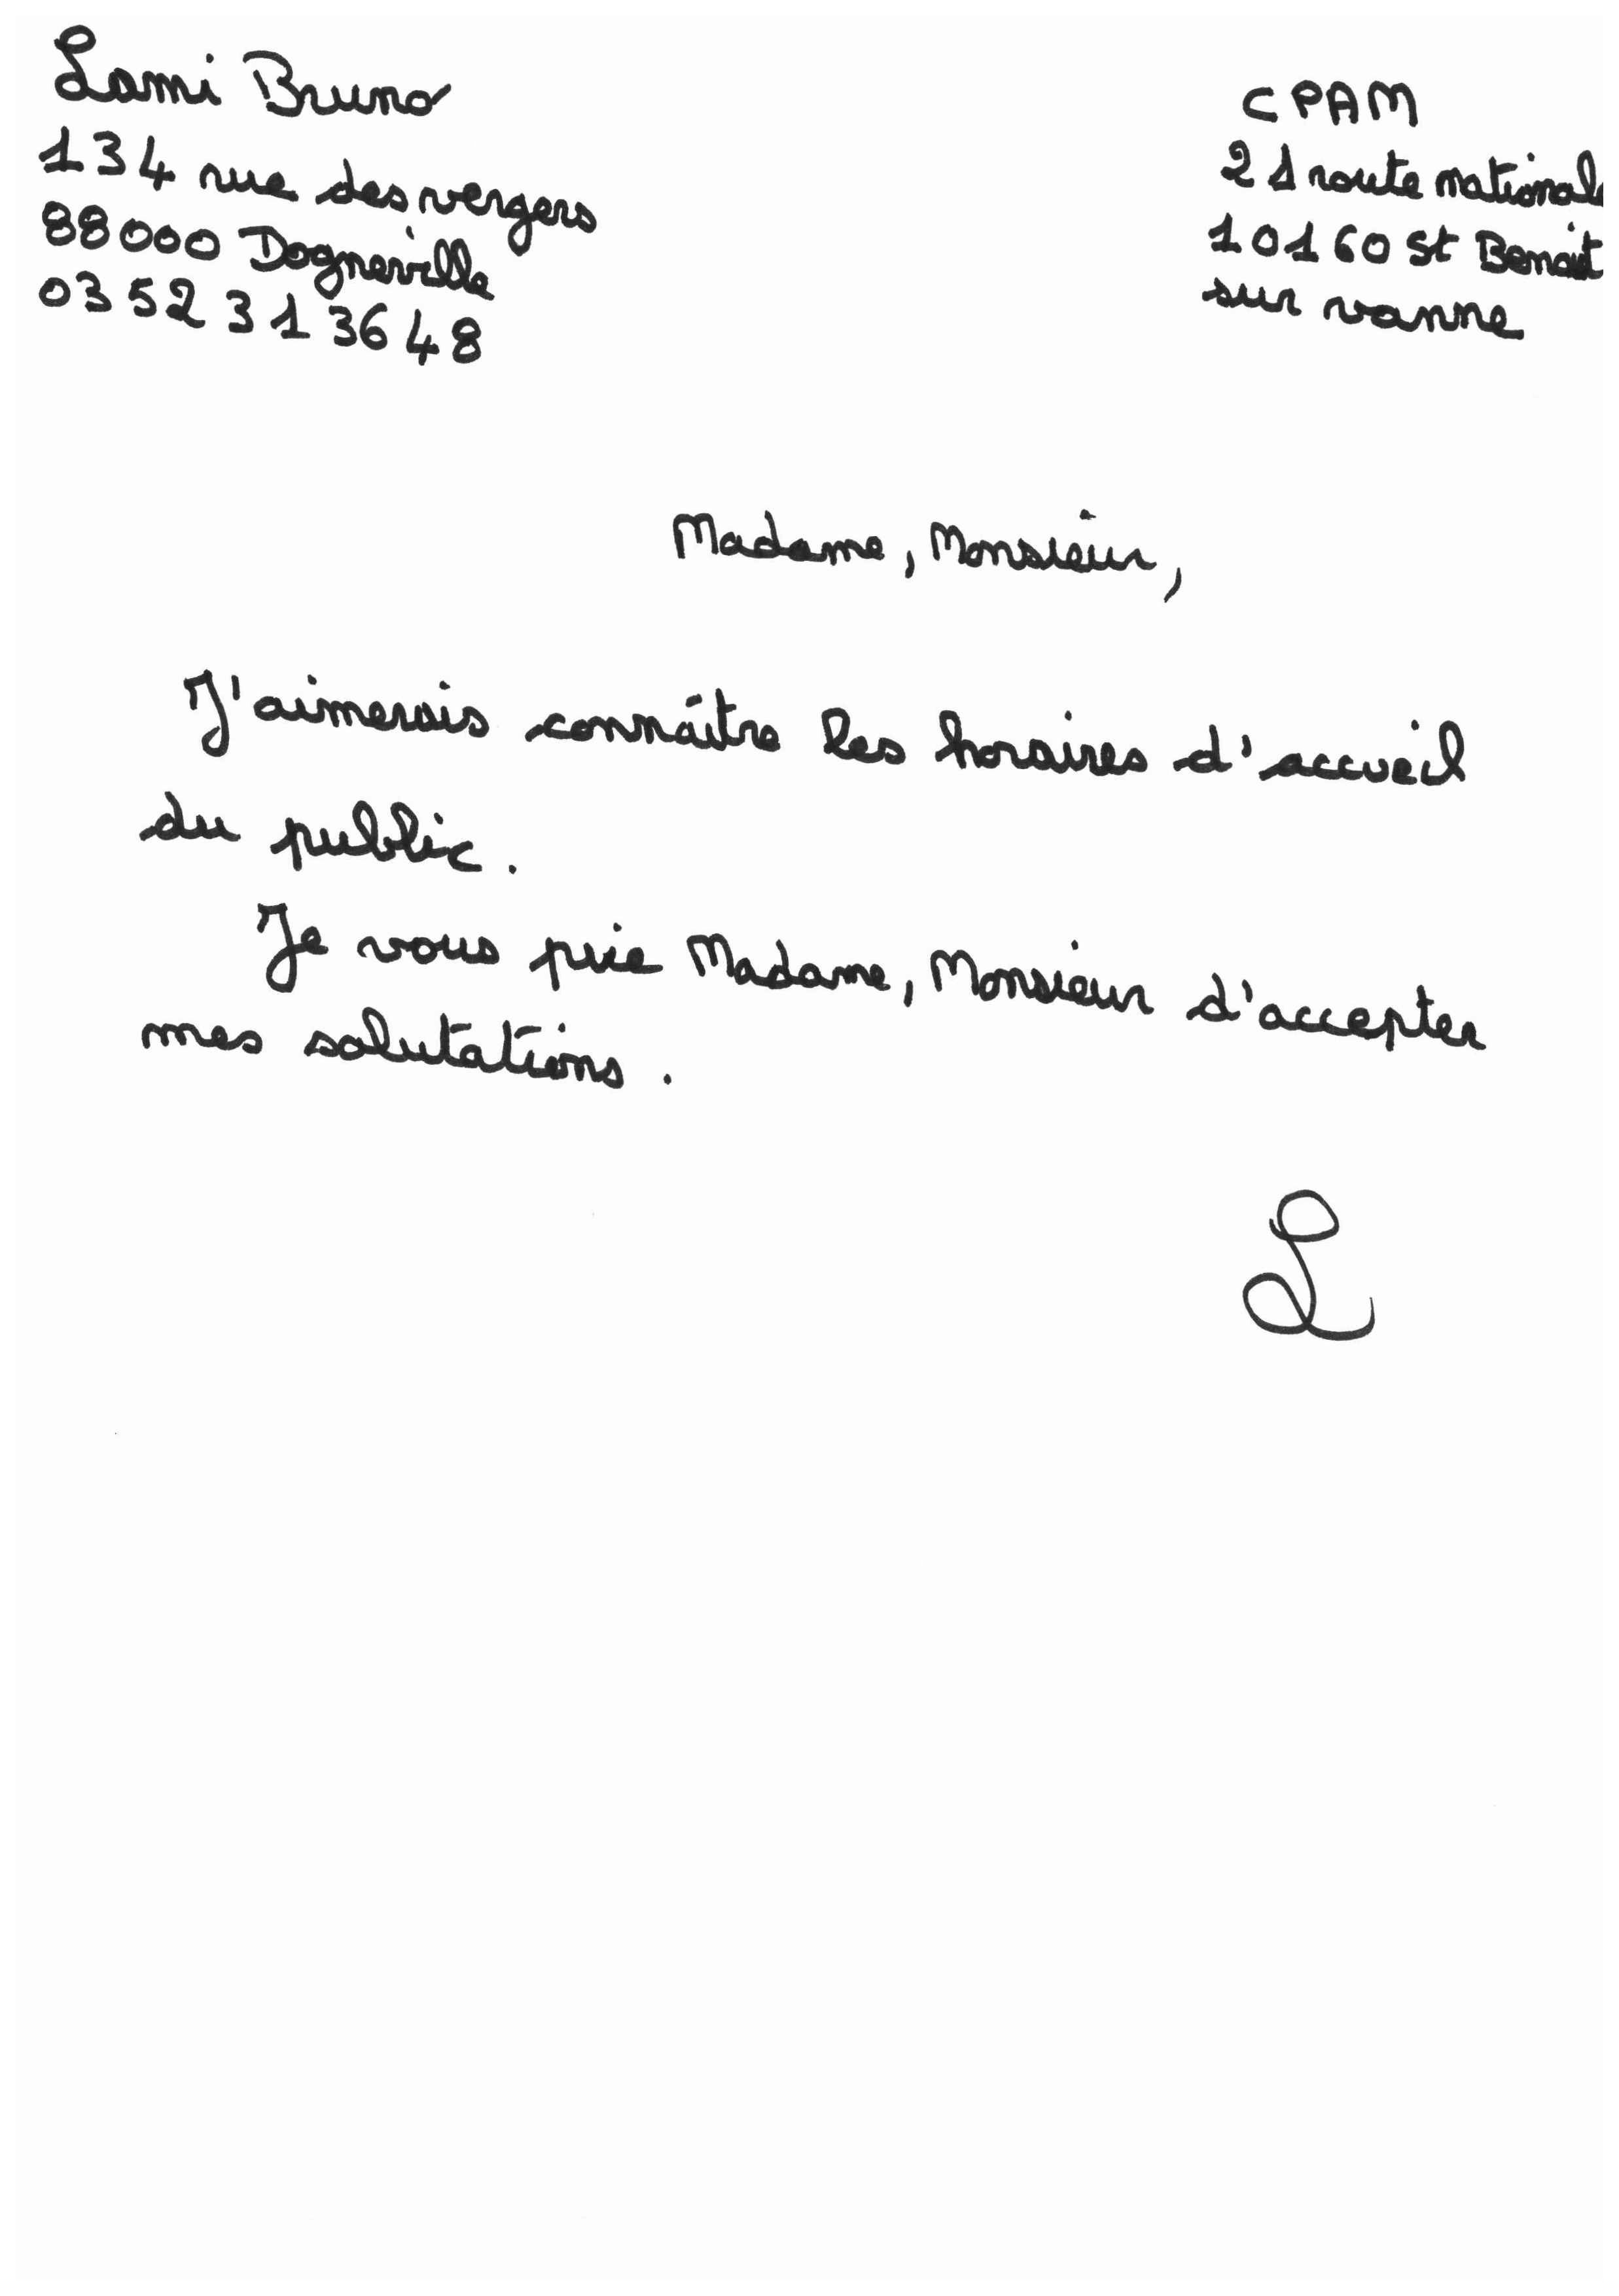 Lami Bruno
134 rue des vergers
88000 Dogneville
03 52 31 36 48
CPAM
21 route national
10160 St Benoit
sur vanne
Madame, Monsieur,
J'aimerais connaître les horaires d'accueil
du public.
Je vous prie Madame, Monsieur d'accepter
mes salutations.
L